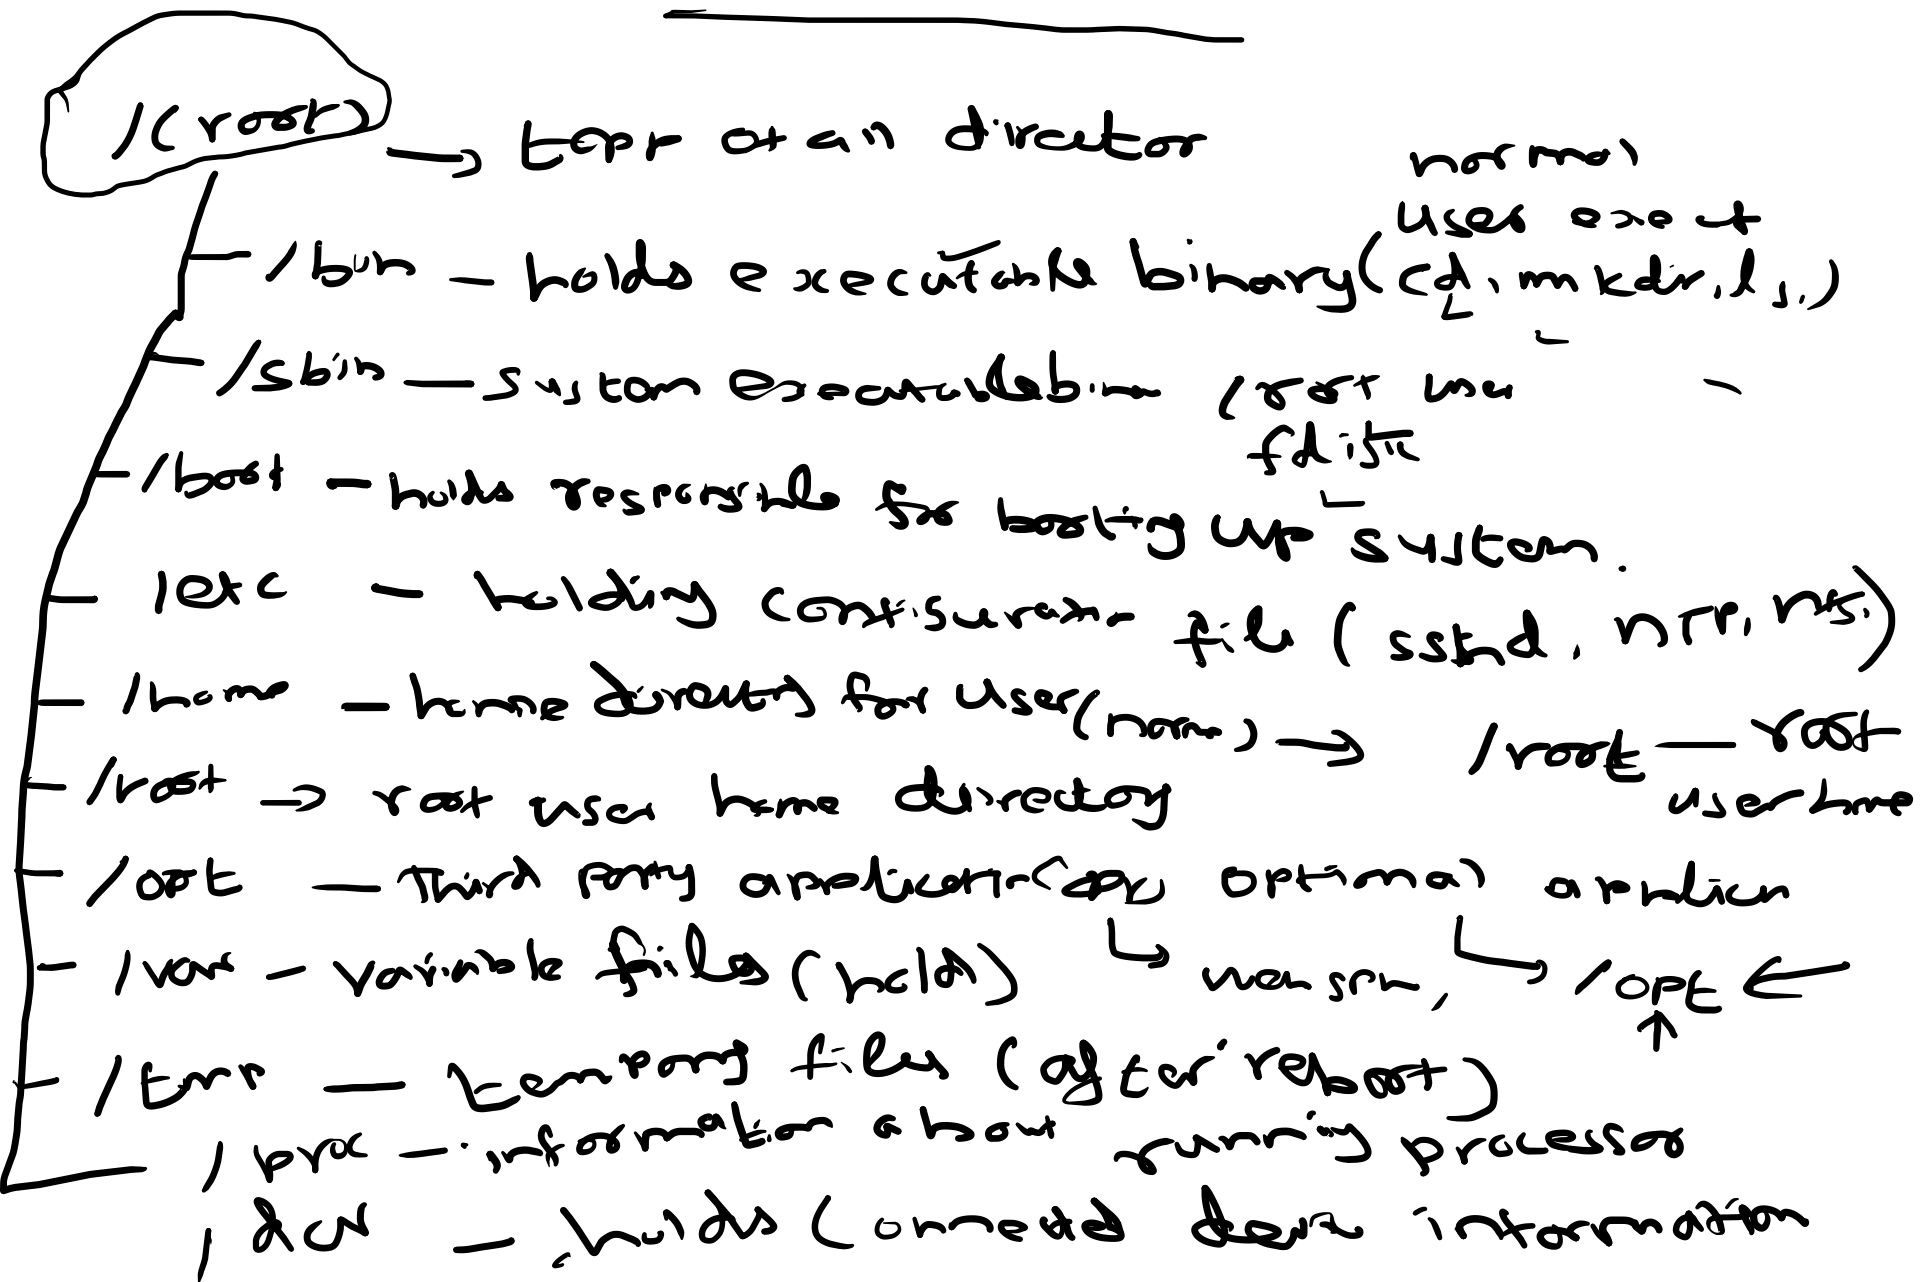 /(root) → topp of all director
normal
user exect
/bin - holds executable binary (cd, mkdir, ls,)
/sbin - system executable bin / root user
fdisk
/boot - holds responsible for booting up system.
/etc - holding configuration file (sshd, NTP, nfs,)
/home - home directory for user (norm) → /root - root
user home
/root → root user home directory
/opt - Third party application optional
/var - variable files (hold) /opt ←
/tmp - temporary files (after reboot)
/proc - information about running processor
/dev - holds connected device information